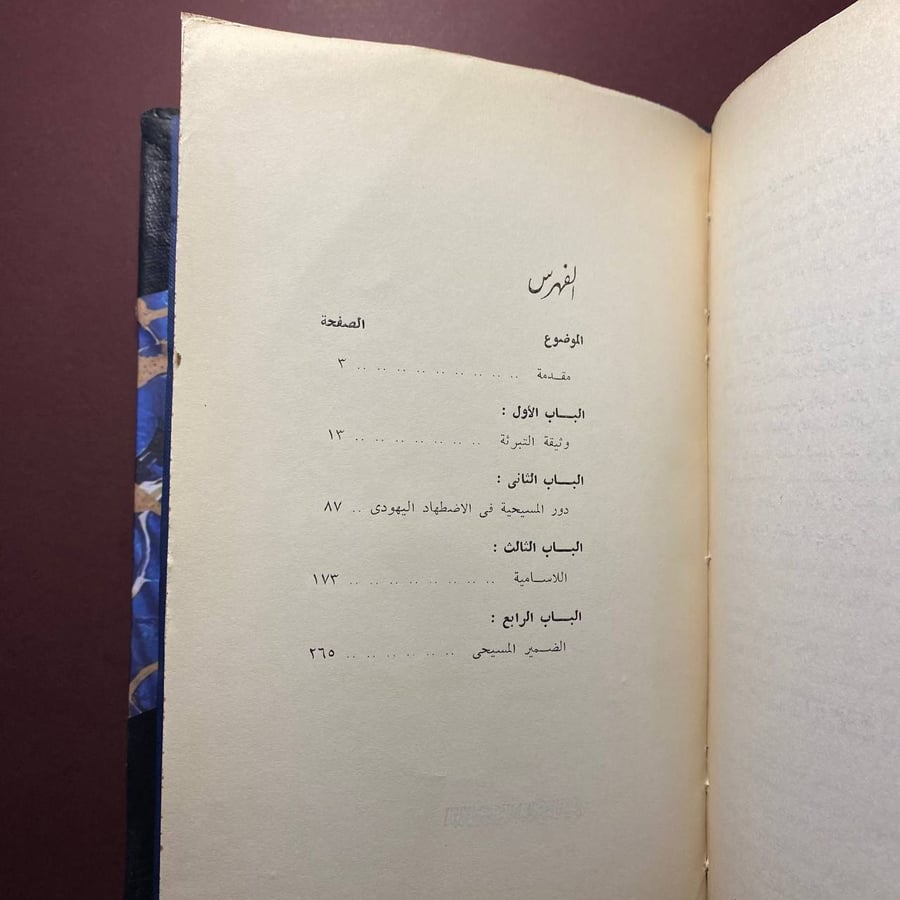 الفهرس
الموضوع الصفحة
مقدمة .. .. .. .. .. .. .. .. .. ٣
الباب الأول :
وثيقة التبرئة .. .. .. .. .. .. .. ١٣
الباب الثانى :
دور المسيحية فى الاضطهاد اليهودى .. ٨٧
الباب الثالث :
اللاسامية .. .. .. .. .. .. .. .. ١٧٣
الباب الرابع :
الضمير المسيحى .. .. .. .. .. .. ٢٦٥